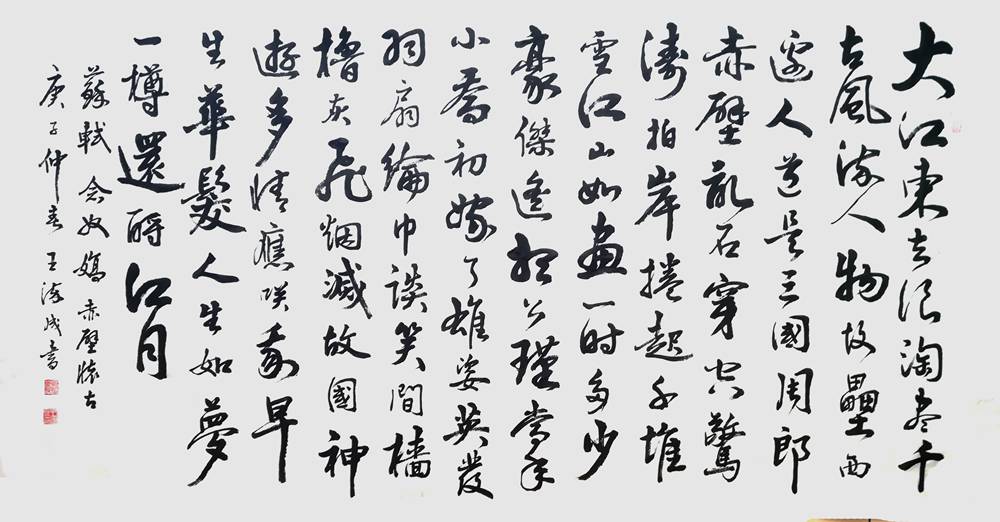 大江東去浪淘盡千
古風流人物故壘西
邊人道是三國周郎
赤壁亂石穿空驚
濤拍岸捲起千堆
雪江山如畫一時多少
豪傑遙想公瑾當年
小喬初嫁了雄姿英發
羽扇綸巾談笑間檣
櫓灰飛烟滅故國神
遊多情應笑我早
生華髮人生如夢
一樽還酹江月
蘇軾念奴嬌赤壁懷古
庚子仲春王海成書